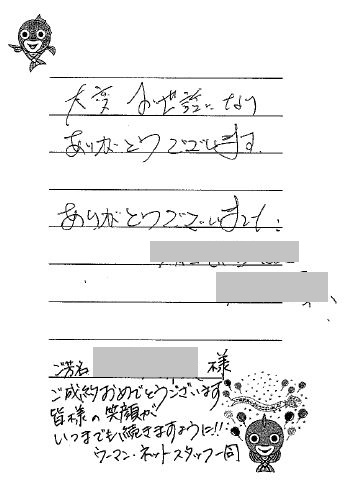 大変お世話になり
ありがとうございます。
ありがとうございました!
ご芳名 様
ご成約おめでとうございます
皆様の笑顔が
いつまでも続きますように!!
ウーマン・ネットスタッフ一同